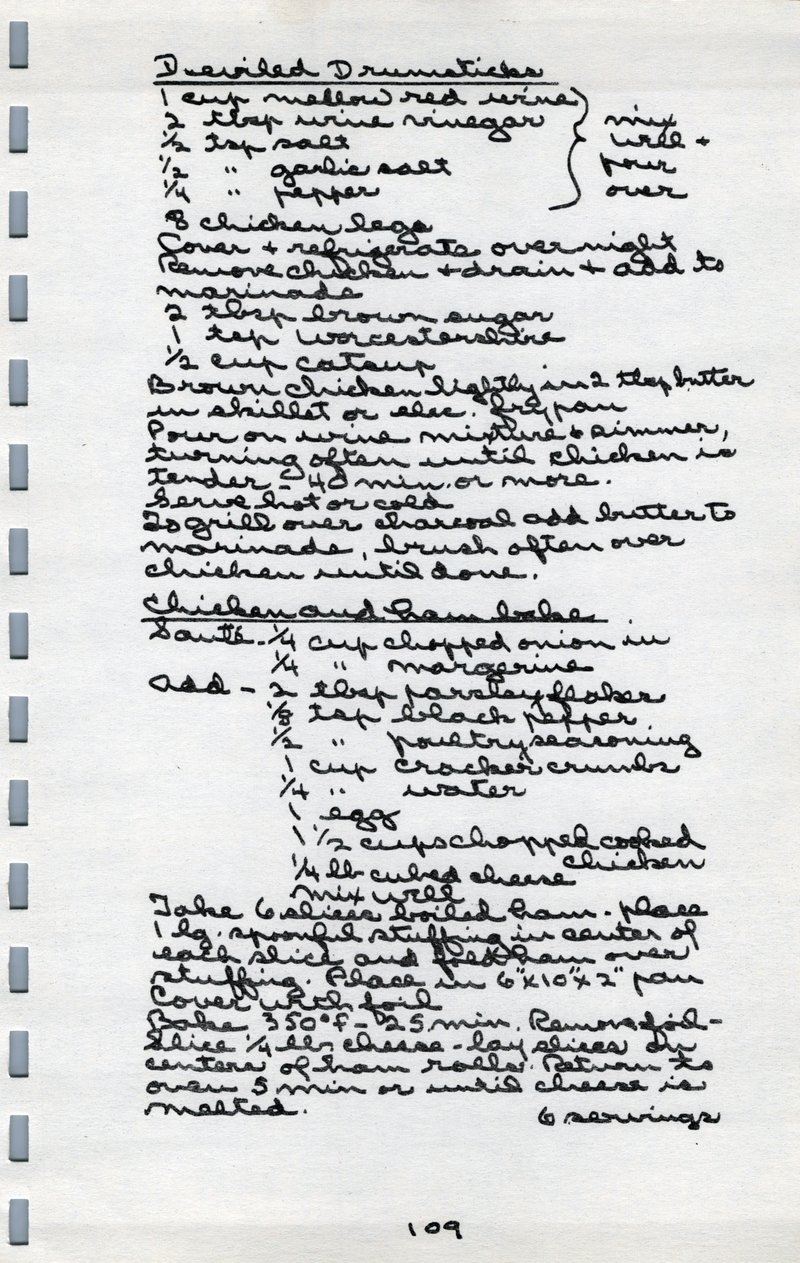 Deviled Drumsticks
1 cup mellow red wine
2 tbsp wine vinegar
1/2 tsp salt
1/2 " garlic salt
1/4 " pepper
} mix
well +
pour
over
8 chicken legs
Cover + refrigerate overnight
Remove chicken + drain + add to
marinade
2 tbsp brown sugar
1 tsp Worcestershire
1/2 cup catsup
Brown chicken lightly in 2 tbsp butter
in skillet or elec. frypan
Pour on wine mixture & simmer,
turning often until chicken is
tender - 40 min. or more.
Serve hot or cold
To grill over charcoal add butter to
marinade, brush often over
chicken until done.
Chicken and ham bake
Sauté - 1/4 cup chopped onion in
1/4 " margerine
Add - 2 tbsp parsley flakes
1/8 tsp black pepper
1/2 " poultry seasoning
1 cup cracker crumbs
1/4 " water
1 egg
1 1/2 cups chopped cooked
chicken
1/4 lb cubed cheese
Mix well
Take 6 slices boiled ham - place
1 lg. spoonful stuffing in center of
each slice and fold ham over
stuffing. Place in 6"x10"x2" pan
Cover with foil
Bake 350°F - 25 min. Remove foil -
Slice 1/4 lb cheese - lay slices on
centers of ham rolls. Return to
oven 5 min or until cheese is
melted.
6 servings
109